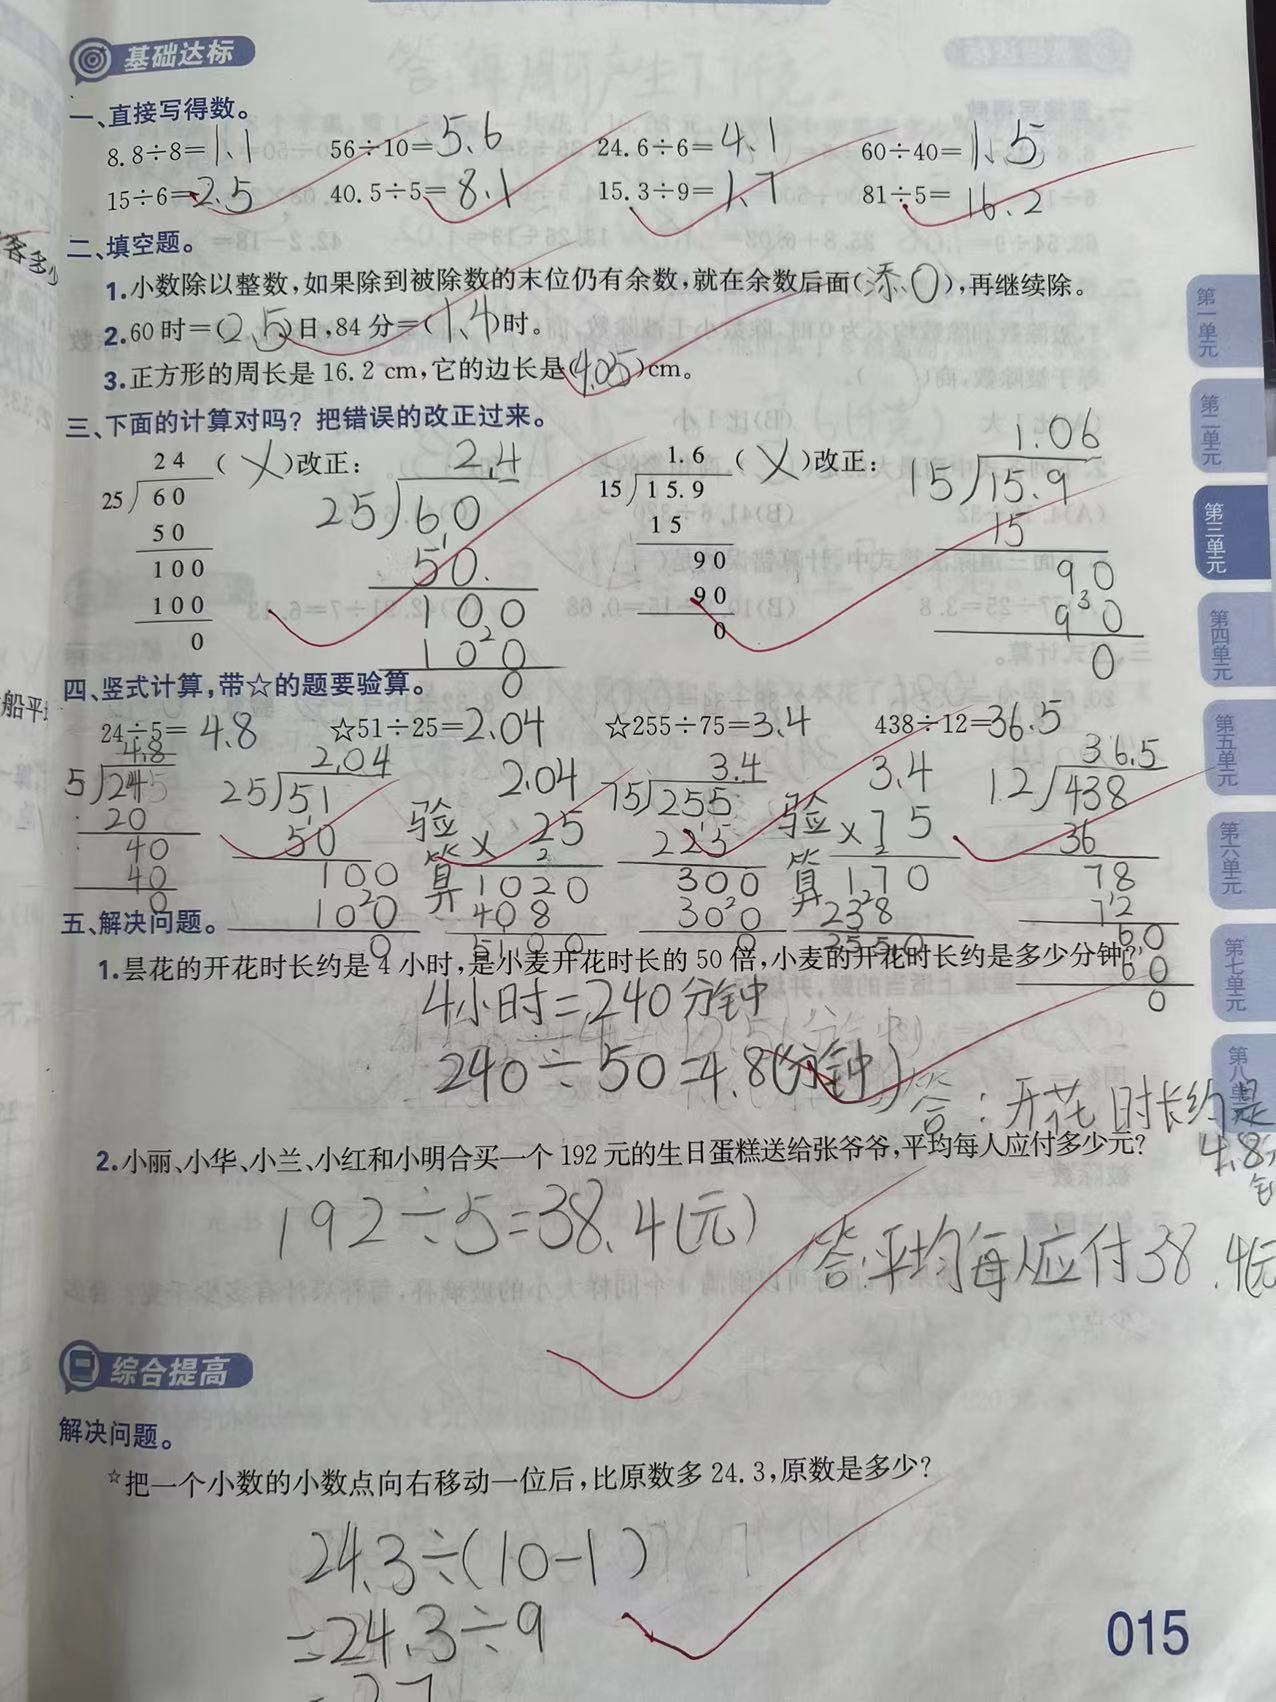 基础达标
一、直接写得数。
8.8÷8=1.1 56÷10=5.6 24.6÷6=4.1 60÷40=1.5
15÷6=2.5 40.5÷5=8.1 15.3÷9=1.7 81÷5=16.2
二、填空题。
1.小数除以整数,如果除到被除数的末位仍有余数,就在余数后面(添0),再继续除。
2.60时=(2.5)日,84分=(1.4)时。
3.正方形的周长是16.2 cm,它的边长是(4.05)cm。
三、下面的计算对吗?把错误的改正过来。
24 (×)改正: 2.4 1.6 (×)改正: 1.06
25 60 25 60 15 15.9 15 15.9
50 50 15 15
100 100 90 90
100 100 90 90
0 0 0 0
四、竖式计算,带☆的题要验算。
24÷5=4.8 ☆51÷25=2.04 ☆255÷75=3.4 438÷12=36.5
4.8 2.04 2.04 3.4 3.4 36.5
5 24 25 51 验算 × 25 75 255 验算 ×75 12 438
20 50 1020 225 170 36
40 100 408 300 238 78
40 100 5100 300 2550 72
0 0 0 60
60
0
五、解决问题。
1.昙花的开花时长约是4小时,是小麦开花时长的50倍,小麦的开花时长约是多少分钟?
4小时=240分钟
240÷50=4.8(分钟)
答:开花时长约是
4.8分
钟
2.小丽、小华、小兰、小红和小明合买一个192元的生日蛋糕送给张爷爷,平均每人应付多少元?
192÷5=38.4(元)
答:平均每人应付38.4元
综合提高
解决问题。
☆把一个小数的小数点向右移动一位后,比原数多24.3,原数是多少?
24.3÷(10-1)
=24.3÷9
015
第一单元
第二单元
第三单元
第四单元
第五单元
第六单元
第七单元
第八单元
船平均